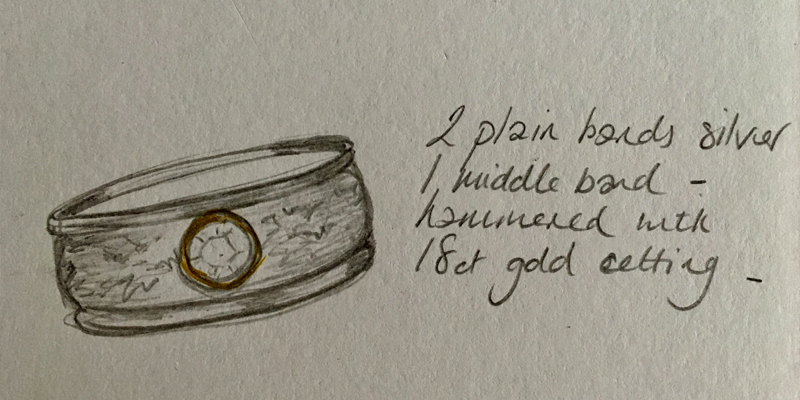 2 plain bands silver
1 middle band -
hammered with
18ct gold setting -